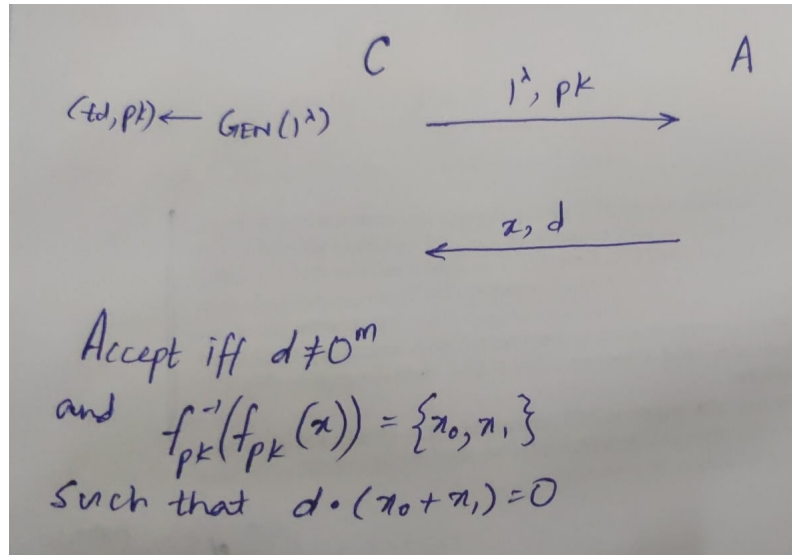 C A
1^λ, pk
(td, pk) ← GEN(1^λ)
x, d
Accept iff d ≠ 0^m
and f_pk^-1(f_pk(x)) = {x_0, x_1}
such that d • (x_0 + x_1) = 0